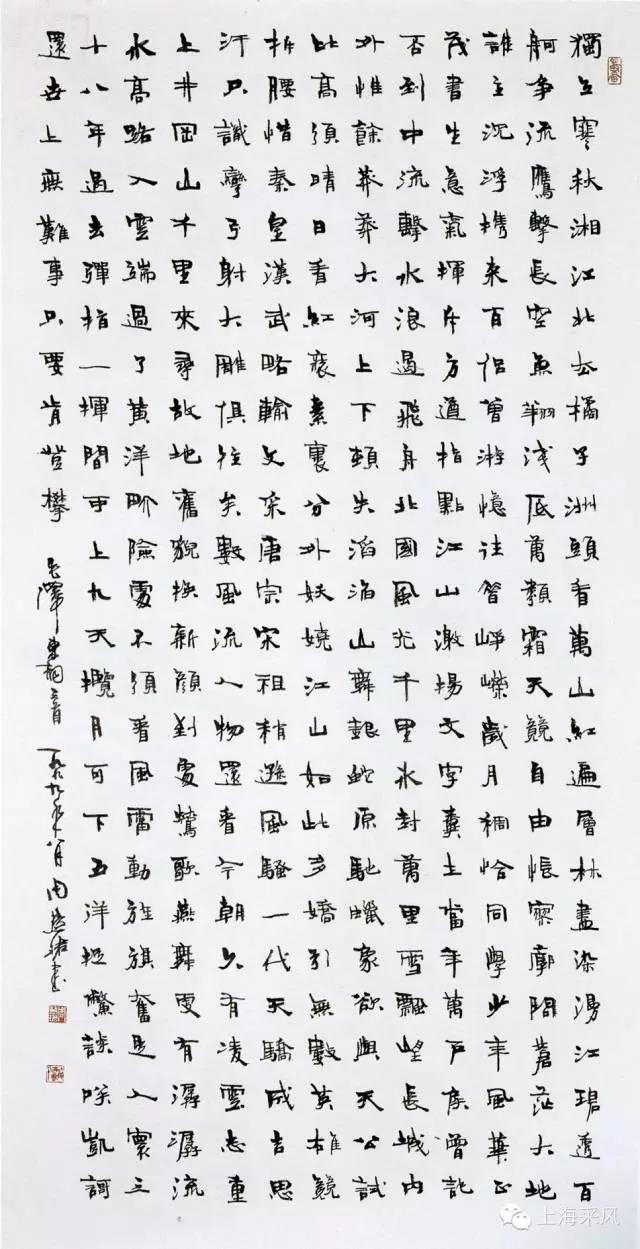 獨立寒秋湘江北去橘子洲頭看萬山紅遍層林盡染漫江碧透百
舸爭流鷹擊長空魚翔淺底萬類霜天競自由悵寥廓問蒼茫大地
誰主沉浮攜來百侶曾游憶往昔崢嶸歲月稠恰同學少年風華正
茂書生意氣揮斥方遒指點江山激揚文字糞土當年萬戶侯曾記
否到中流擊水浪遏飛舟北國風光千里冰封萬里雪飄望長城內
外惟餘莽莽大河上下頓失滔滔山舞銀蛇原馳蠟象欲與天公試
比高須晴日看紅裝素裹分外妖嬈江山如此多嬌引無數英雄競
折腰惜秦皇漢武略輸文采唐宗宋祖稍遜風騷一代天驕成吉思
汗只識彎弓射大雕俱往矣數風流人物還看今朝久有凌雲志重
上井岡山千里來尋故地舊貌換新顏到處鶯歌燕舞更有潺潺流
水高路入雲端過了黃洋界險處不須看風雷動旌旗奮是人寰三
十八年過去彈指一揮間可上九天攬月可下五洋捉鱉談笑凱歌
還世上無難事只要肯登攀 毛澤東詞三首 周慧珺書
上海采风